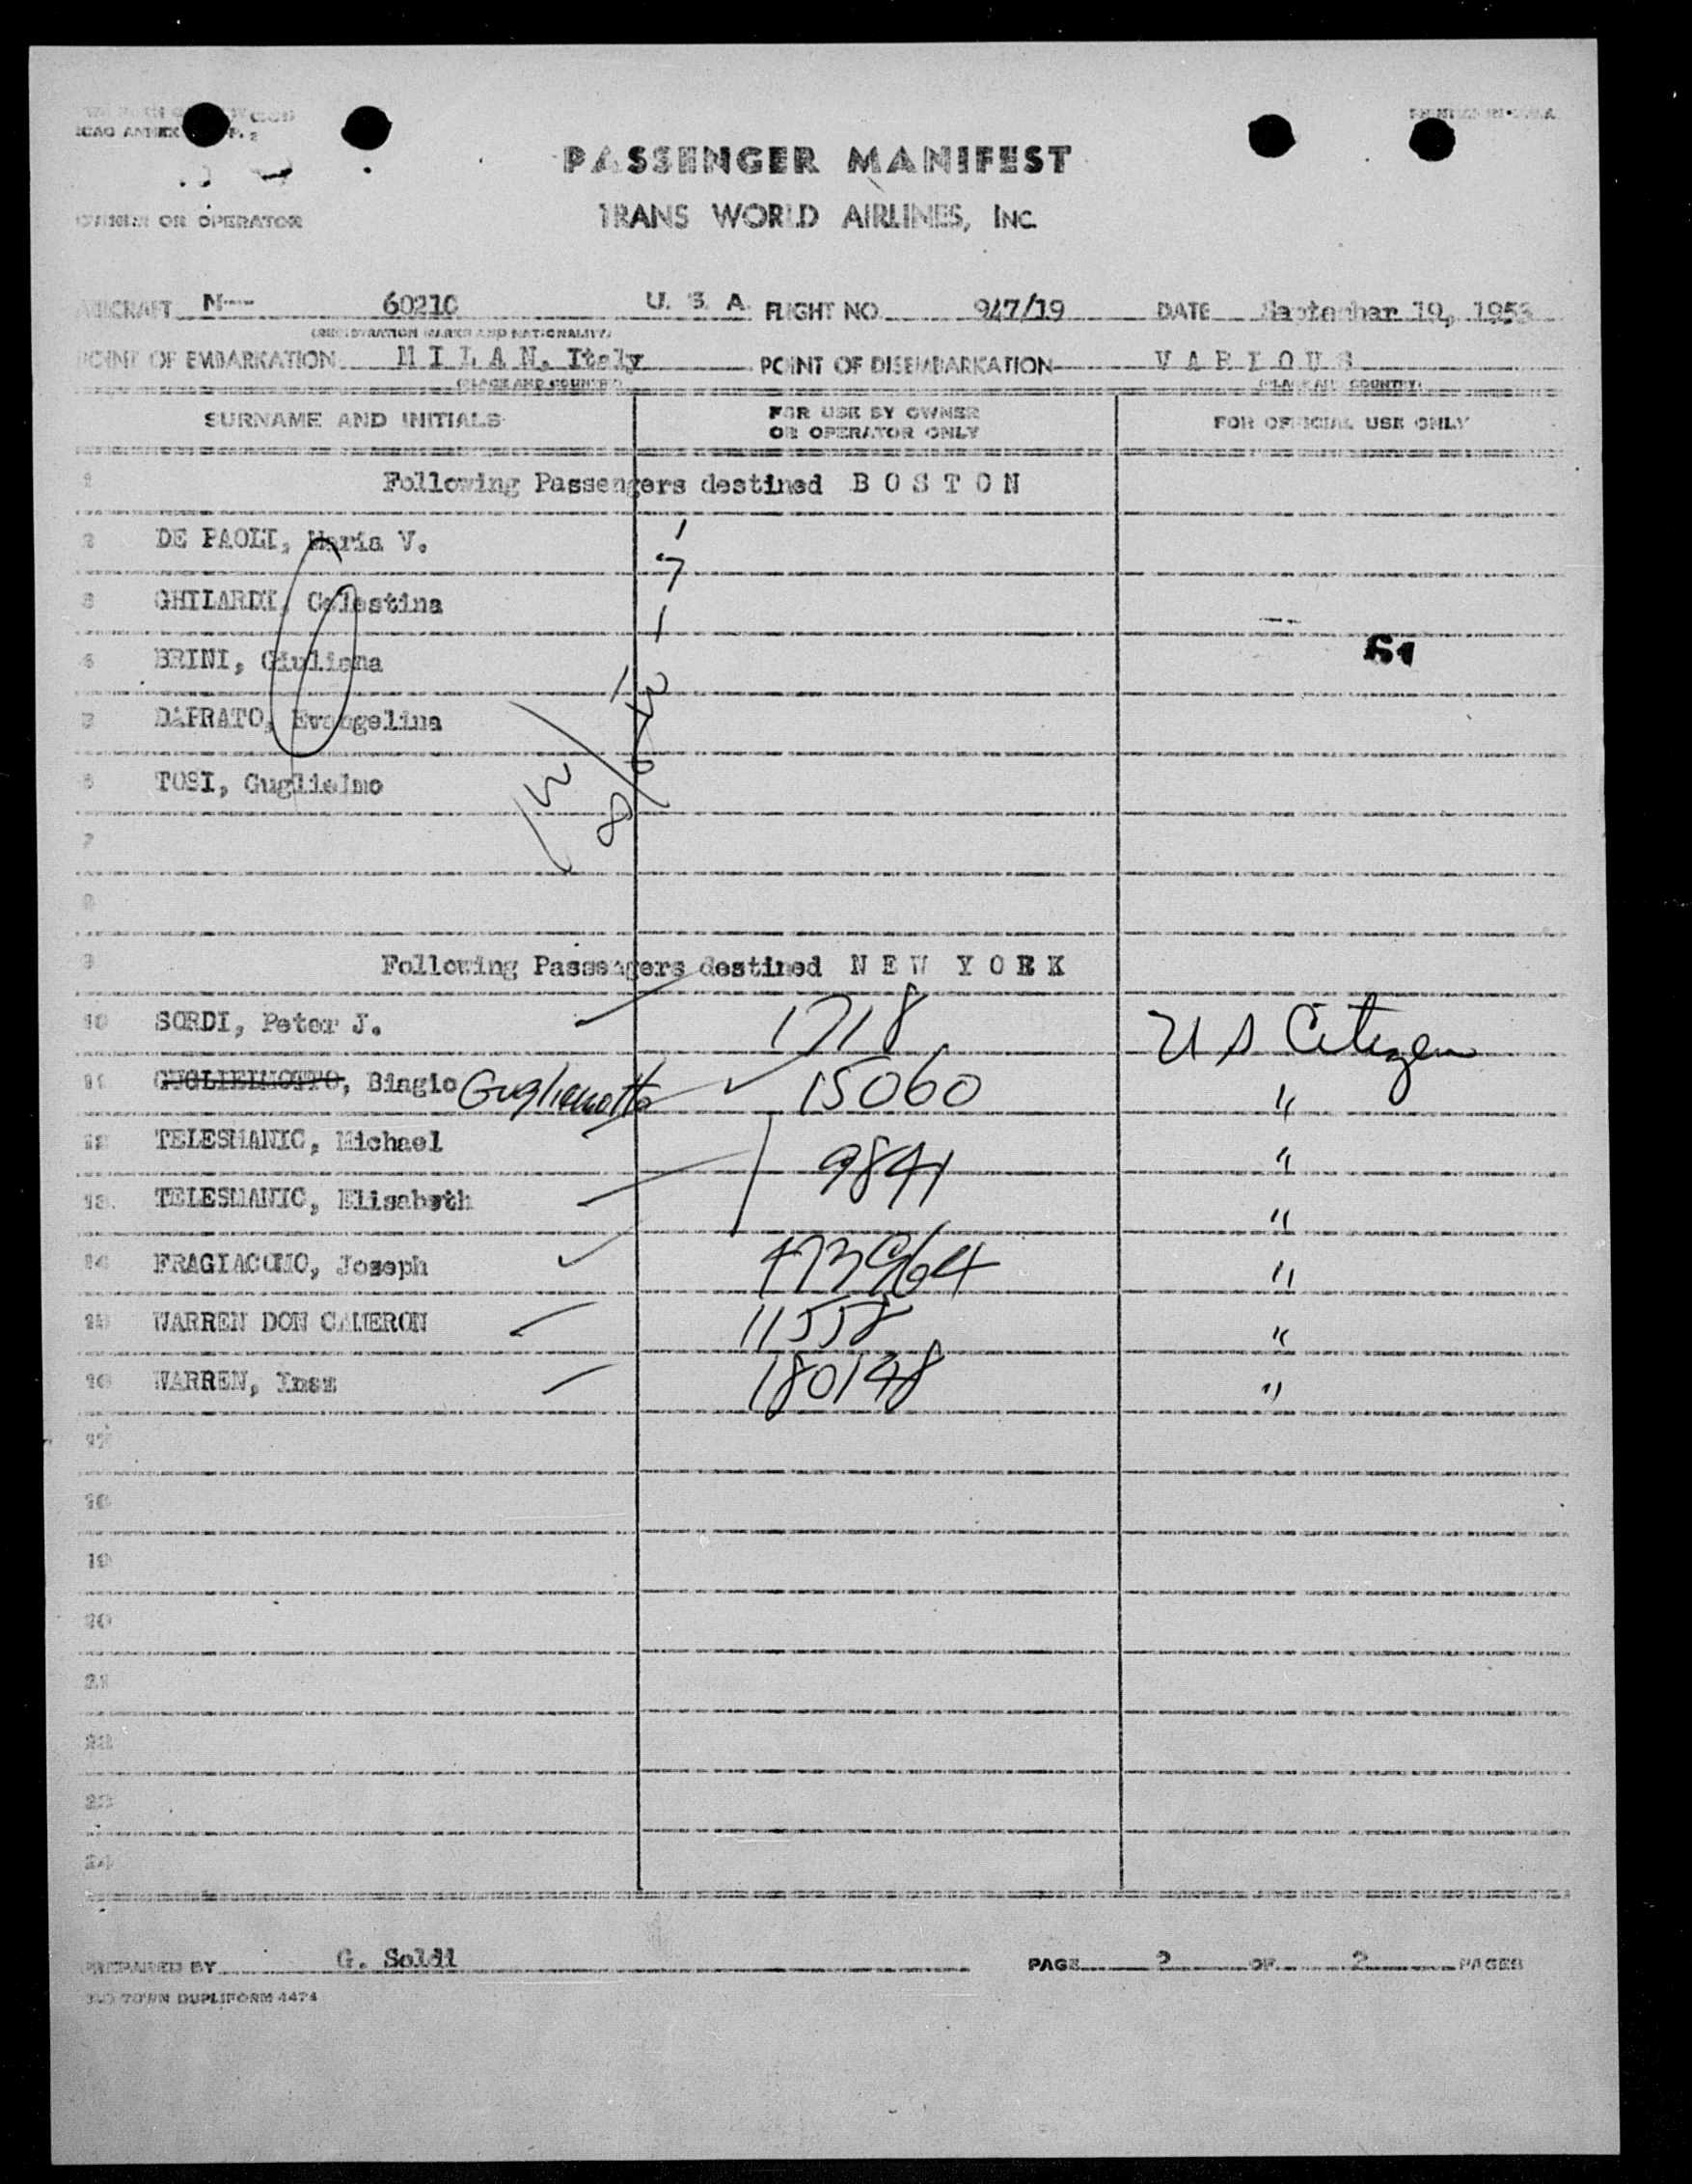 ICAO ANNEX P. 2
PASSENGER MANIFEST
OWNER OR OPERATOR TRANS WORLD AIRLINES, INC
AIRCRAFT N--- 60210 U. S. A. FLIGHT NO 947/19 DATE September 19, 1953
(REGISTRATION MARKS AND NATIONALITY)
POINT OF EMBARKATION M I L A N, Italy POINT OF DISEMBARKATION V A R I O U S
(PLACE AND COUNTRY) (PLACE AND COUNTRY)
SURNAME AND INITIALS FOR USE BY OWNER OR OPERATOR ONLY FOR OFFICIAL USE ONLY
1 Following Passengers destined B O S T O N
2 DE PAOLI, Maria V. 1
7
3 GHILARDI, Celestina
1
4 BRINI, Giuliana
61
5 DAPRATO, Evangelina
6 TOSI, Guglielmo
7
8
9 Following Passengers destined N E W Y O R K
10 SORDI, Peter J. 1718 US Citizen
11 GUGLIELMOTTO, Biagio Guglielmotto 15060 "
12 TELESMANIC, Michael 9841 "
13 TELESMANIC, Elisabeth "
14 FRAGIACOMO, Joseph "
15 WARREN DON CAMERON 11558 "
16 WARREN, Inez 180148 "
17
18
19
20
21
22
23
24
PREPARED BY G. Soldi PAGE 2 OF 2 PAGES
OLD TOWN DUPLIFORM 4474